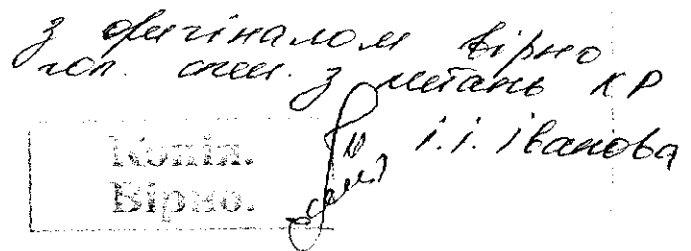 з оригіналом вірно
гол. спец. з питань КР
І.І. Іванова
Копія.
Вірно.